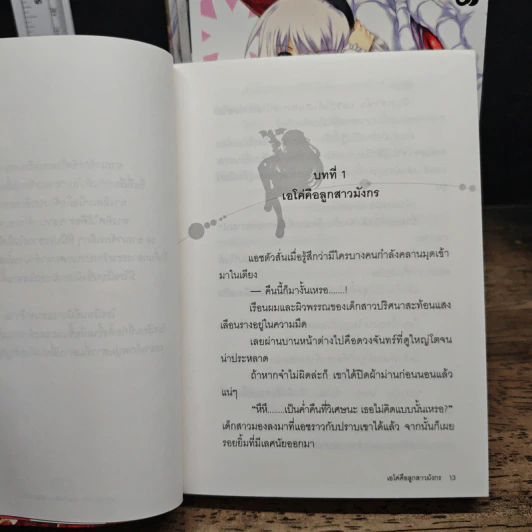 บทที่ 1
เอโค่คือลูกสาวมังกร
แอชตัวสั่นเมื่อรู้สึกว่ามีใครบางคนกำลังคลานมุดเข้า
มาในเตียง
— คืนนี้ก็มางั้นเหรอ.......!
เรือนผมและผิวพรรณของเด็กสาวปริศนาสะท้อนแสง
เลือนรางอยู่ในความมืด
เลยผ่านบานหน้าต่างไปคือดวงจันทร์ที่ดูใหญ่โตจน
น่าประหลาด
ถ้าหากจำไม่ผิดล่ะก็ เขาได้ปิดผ้าม่านก่อนนอนแล้ว
แน่ๆ
"หึหึ.......เป็นค่ำคืนที่วิเศษนะ เธอไม่คิดแบบนั้นเหรอ?"
เด็กสาวมองลงมาที่แอชราวกับปราบเขาได้แล้ว จากนั้นก็เผย
รอยยิ้มที่มีเลศนัยออกมา
เอโค่คือลูกสาวมังกร 13